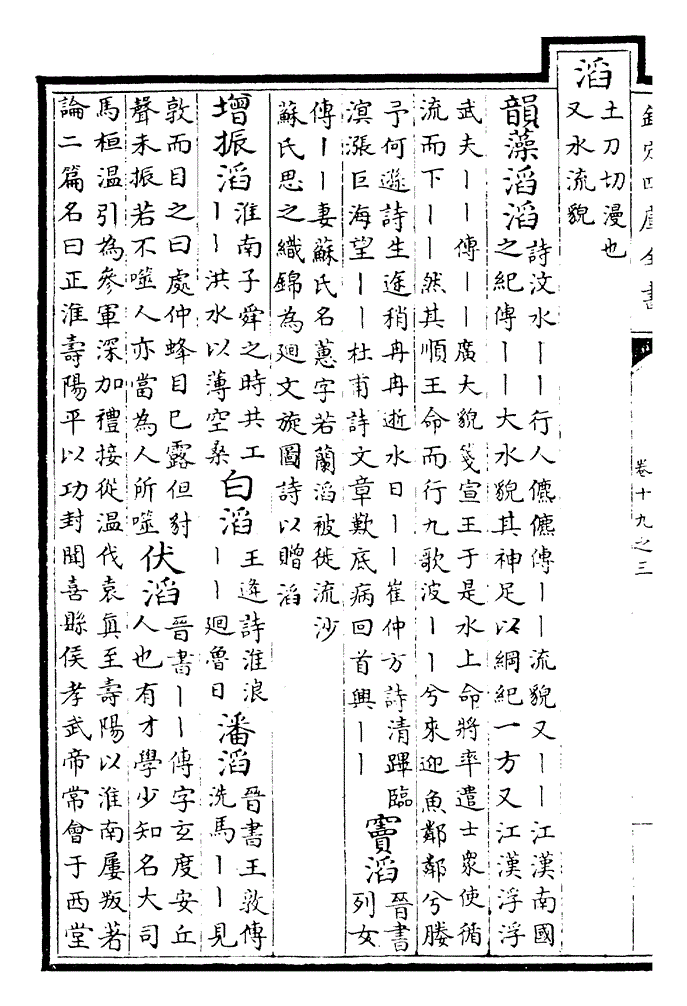 欽定四庫全書
卷十九之三
滔
土刀切漫也
又水流貌
韻藻滔滔
詩汶水丨丨行人儦儦傳丨丨流貌又丨丨江漢南國
之紀傳丨丨大水貌其神足以綱紀一方又江漢浮浮
武夫丨丨傳丨丨廣大貌箋宣王于是水上命將率遣士衆使循
流而下丨丨然其順王命而行九歌波丨丨兮來迎魚鄰鄰兮媵
予何遜詩生途稍冉冉逝水日丨丨崔仲方詩清蹕臨
溟漲巨海望丨丨杜甫詩文章歎底病回首興丨丨
竇滔
晉書
列女
傳丨丨妻蘇氏名蕙字若蘭滔被徙流沙
蘇氏思之織錦為廻文旋圖詩以贈滔
增振滔
淮南子舜之時共工
丨丨洪水以薄空桑
白滔
王逢詩淮浪
丨丨廻魯日
潘滔
晉書王敦傳
洗馬丨丨見
敦而目之曰處仲蜂目已露但豺
聲未振若不噬人亦當為人所噬
伏滔
晉書丨丨傳字玄度安丘
人也有才學少知名大司
馬桓温引為參軍深加禮接從温伐袁真至壽陽以淮南屢叛著
論二篇名曰正淮壽陽平以功封聞喜縣侯孝武帝常會于西堂